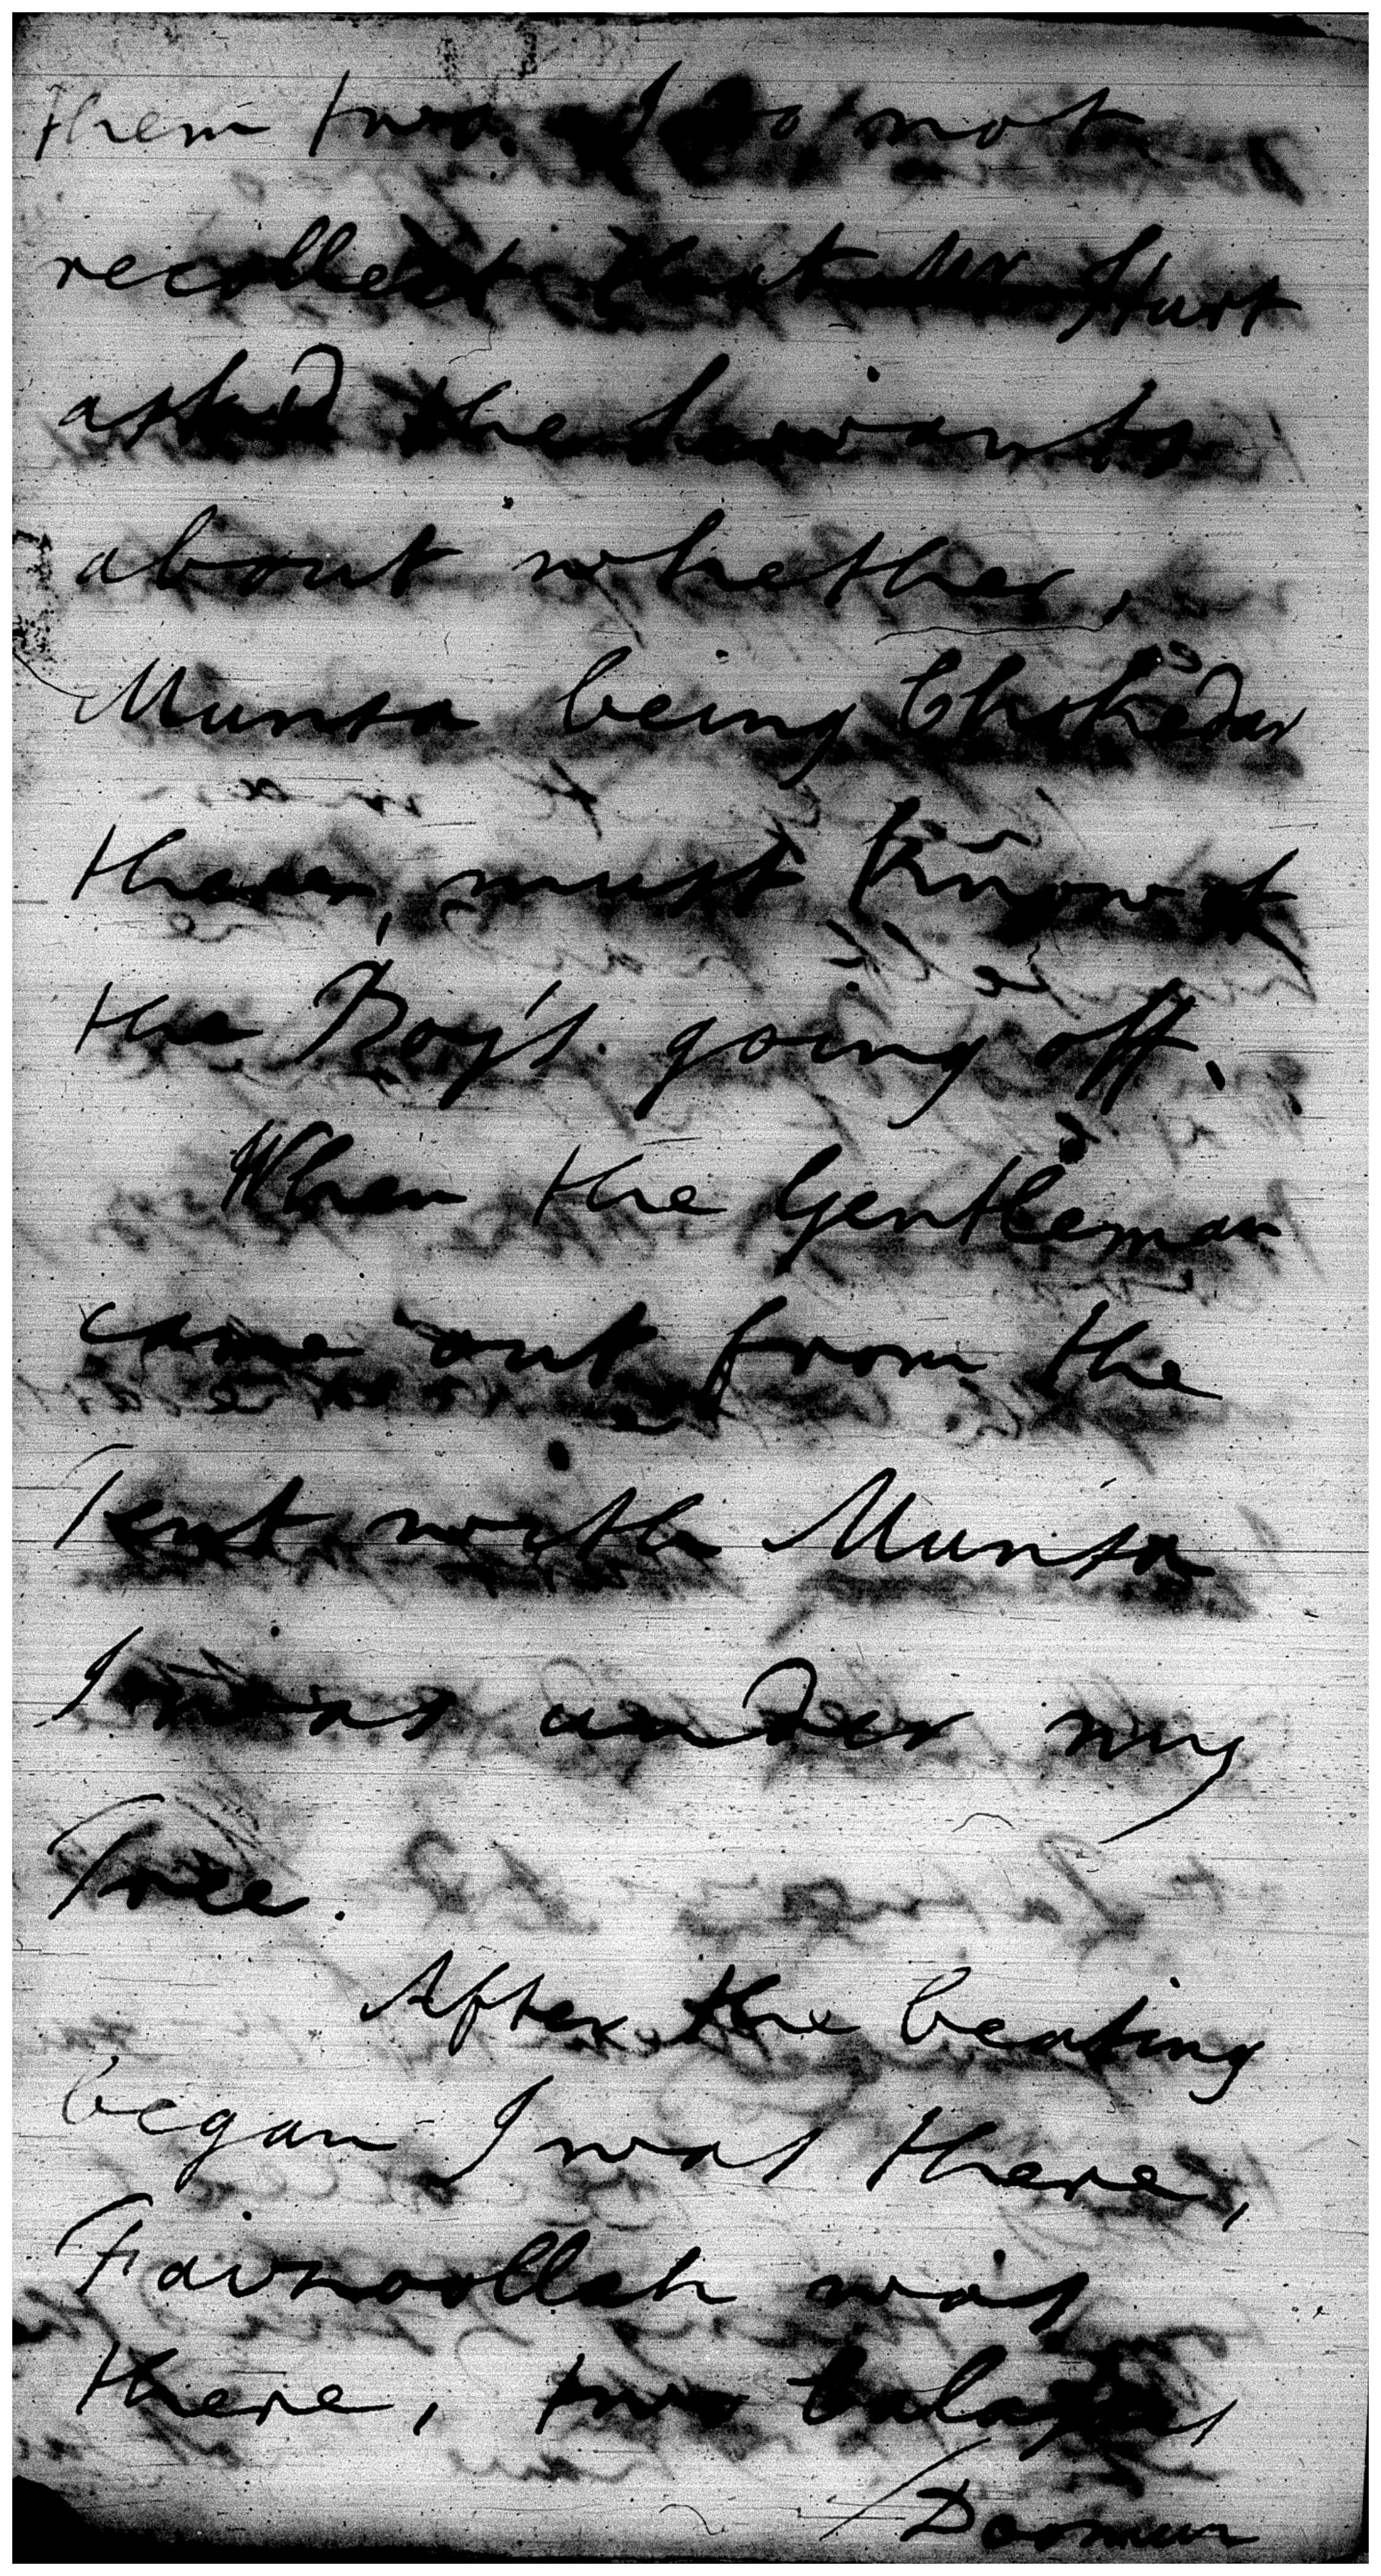 them two. I do not
recollect that Mr Hurt
asked the Servants
about whether,
Munsa being Chokedar
there, must know of
the Boy's going off.
When the Gentleman
came out from the
Tent with Munsa
I was under my
Tree.
After the beating
began I was there,
was
there, two
Doomun